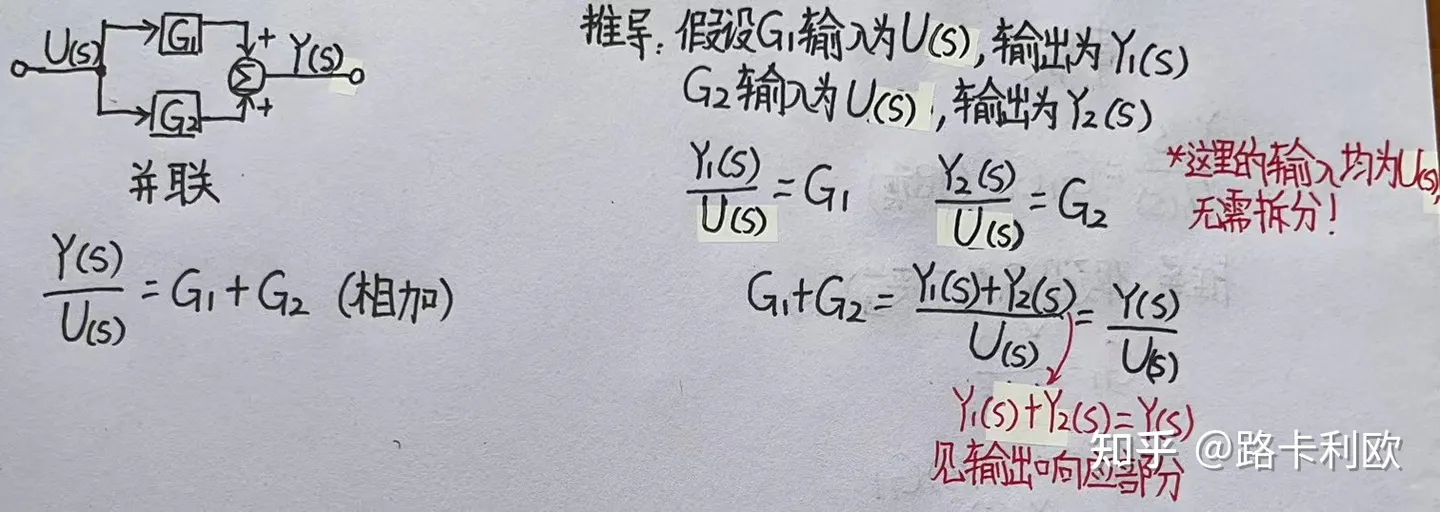 U(S) G1 + Y(S)
Σ
G2 +
并联
Y(S)/U(S) = G1 + G2 (相加)
推导: 假设G1输入为U(S), 输出为Y1(S)
G2输入为U(S), 输出为Y2(S)
Y1(S)/U(S) = G1 Y2(S)/U(S) = G2
*这里的输入均为U(S),
无需拆分!
G1+G2 = Y1(S)+Y2(S)/U(S) = Y(S)/U(S)
Y1(S)+Y2(S)=Y(S)
见输出响应部分
知乎 @路卡利欧